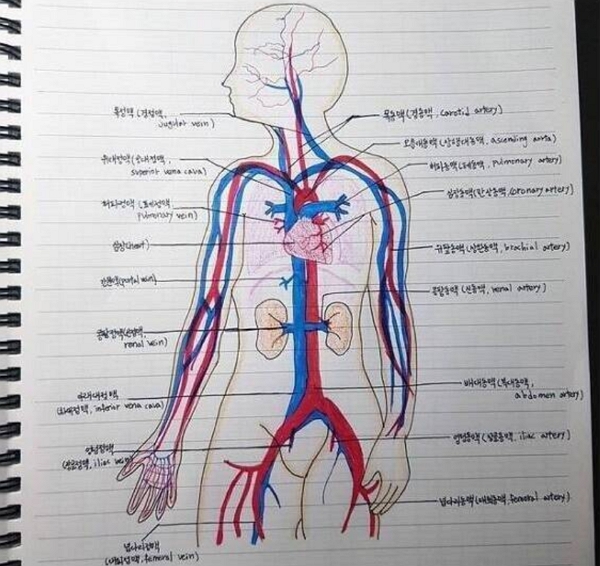 목정맥 (경정맥,
jugular vein)
위대정맥 (상대정맥,
superior vena cava)
허파정맥 (폐정맥,
pulmonary vein)
심장(heart)
간문맥(portal vein)
콩팥정맥(신정맥,
renal vein)
아래대정맥
(하대정맥, inferior vena cava)
엉덩정맥
(장골정맥, iliac vein)
넙다리정맥
(대퇴정맥, femoral vein)
목동맥 (경동맥, carotid artery)
오름대동맥 (상행대동맥, ascending aorta)
허파동맥 (폐동맥, pulmonary artery)
심장동맥 (관상동맥, coronary artery)
위팔동맥 (상완동맥, brachial artery)
콩팥동맥 (신동맥, renal artery)
배대동맥 (복대동맥,
abdomen artery)
엉덩동맥 (장골동맥, iliac artery)
넙다리동맥 (대퇴동맥, femoral artery)